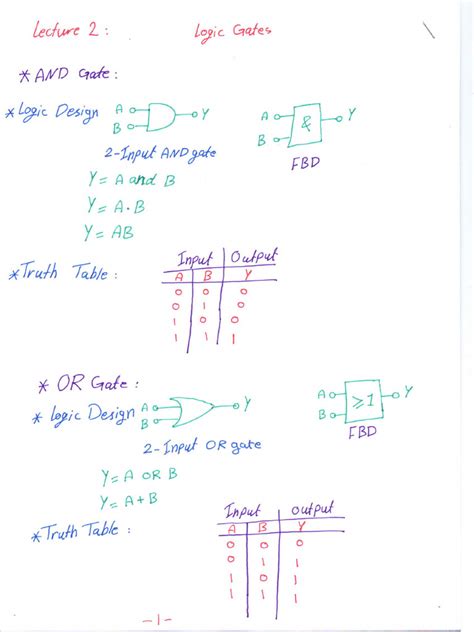 Lecture 2 : Logic Gates
* AND Gate :
* Logic Design A B Y A B & Y
2-Input AND gate FBD
Y = A and B
Y = A . B
Y = AB
* Truth Table : Input Output
A B Y
0 0 0
0 1 0
1 0 0
1 1 1
* OR Gate :
* Logic Design A B Y A B ≥1 Y
2-Input OR gate FBD
Y = A OR B
Y = A + B
* Truth Table : Input Output
A B Y
0 0 0
0 1 1
1 0 1
1 1 1
-1-